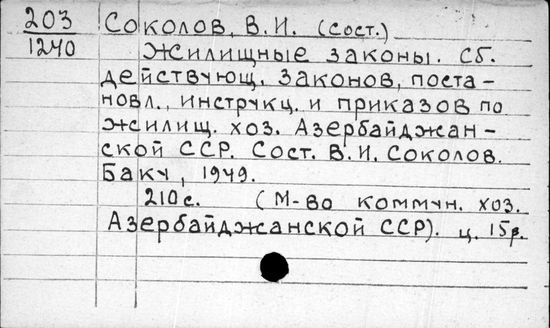 203 Соколов, В.И. (сост.)
1240 Жилищные законы. Сб.
действующ. законов, поста-
новл., инструкц. и приказов по
жилищ. хоз. Азербайджан-
ской ССР. Сост. В.И. Соколов.
Баку, 1949.
210 с. (М-во коммун. хоз.
Азербайджанской ССР). ц. 15р.